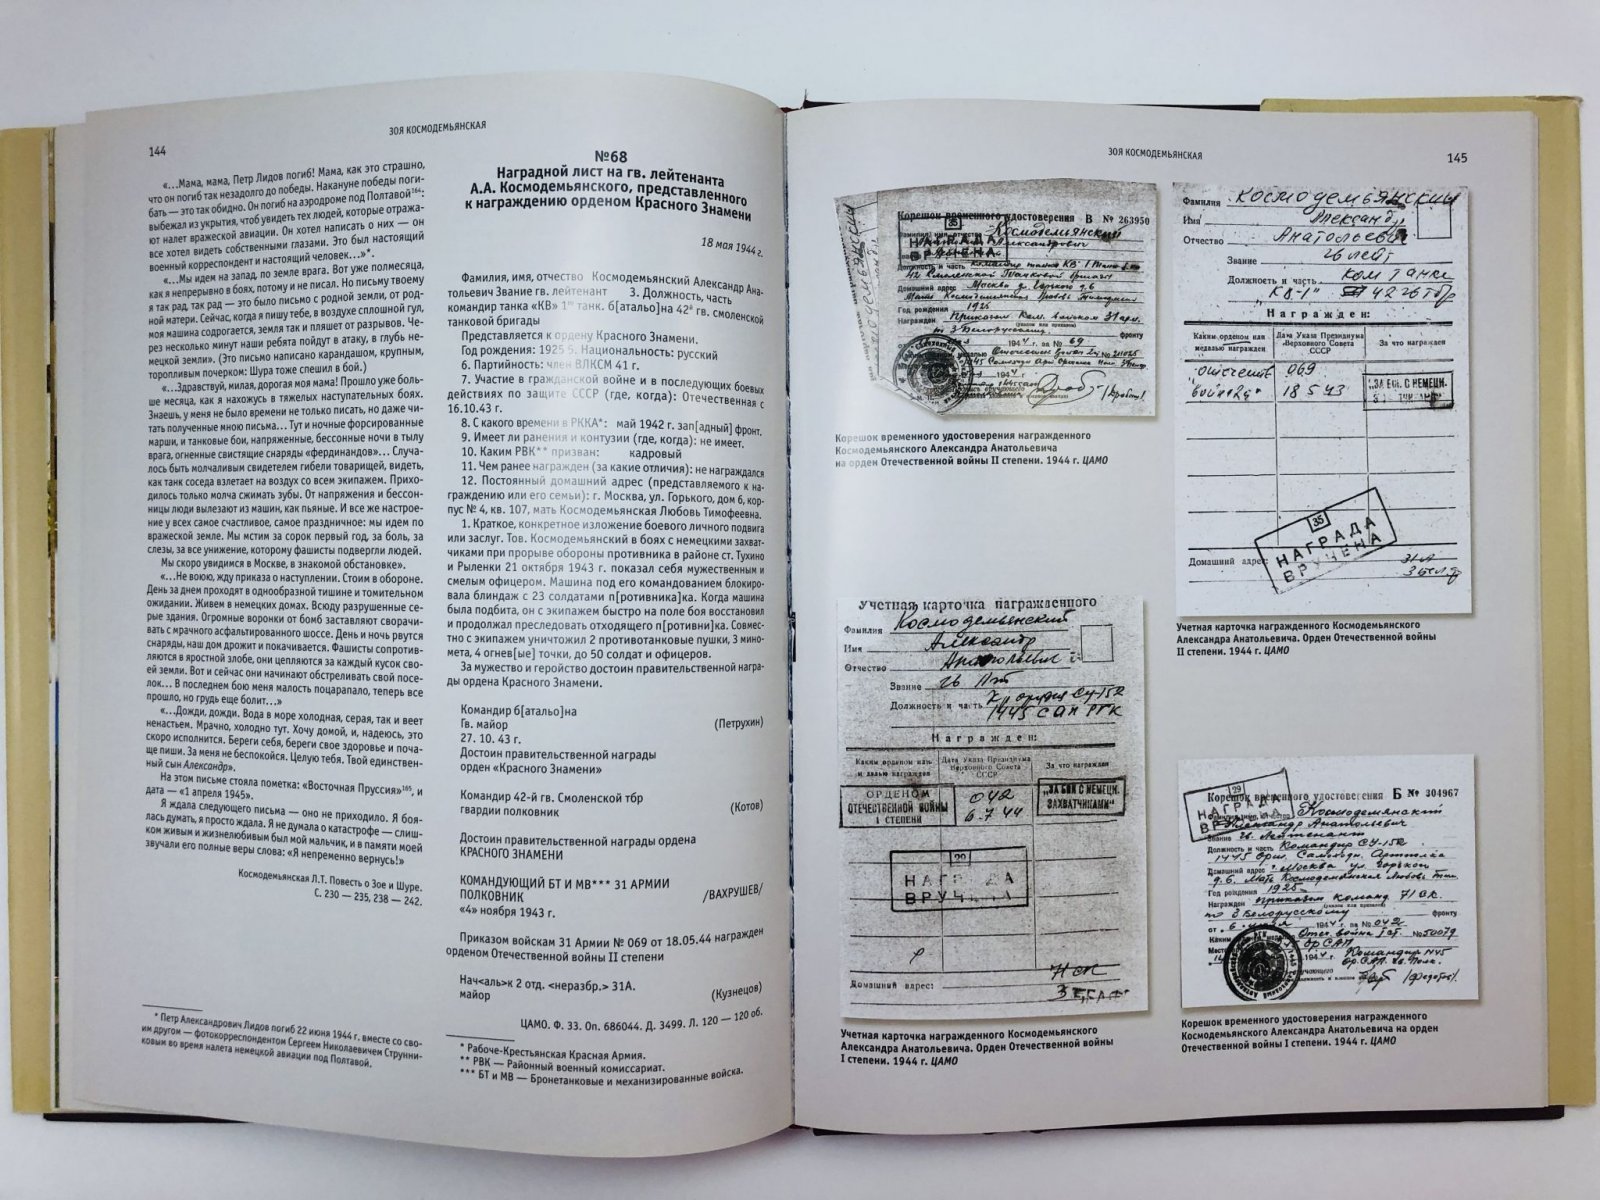 144
ЗОЯ КОСМОДЕМЬЯНСКАЯ
«…Мама, мама, Петр Лидов погиб! Мама, как это страшно,
что он погиб так незадолго до победы. Накануне победы поги-
бать — это так обидно. Он погиб на аэродроме под Полтавой¹⁶⁴:
выбежал из укрытия, чтоб увидеть тех людей, которые отража-
ют налет вражеской авиации. Он хотел написать о них — он
все хотел видеть собственными глазами. Это был настоящий
военный корреспондент и настоящий человек…»*.
«…Мы идем на запад, по земле врага. Вот уже полмесяца,
как я непрерывно в боях, потому и не писал. Но письму твоему
я так рад, так рад — это было письмо с родной земли, от род-
ной матери. Сейчас, когда я пишу тебе, в воздухе сплошной гул,
моя машина содрогается, земля так и пляшет от разрывов. Че-
рез несколько минут наши ребята пойдут в атаку, в глубь не-
мецкой земли». (Это письмо написано карандашом, крупным,
торопливым почерком: Шура тоже спешил в бой.)
«…Здравствуй, милая, дорогая моя мама! Прошло уже боль-
ше месяца, как я нахожусь в тяжелых наступательных боях.
Знаешь, у меня не было времени не только писать, но даже чи-
тать полученные мною письма… Тут и ночные форсированные
марши, и танковые бои, напряженные, бессонные ночи в тылу
врага, огненные свистящие снаряды «фердинандов»… Случа-
лось быть молчаливым свидетелем гибели товарищей, видеть,
как танк соседа взлетает на воздух со всем экипажем. Прихо-
дилось только молча сжимать зубы. От напряжения и бессон-
ницы люди вылезают из машин, как пьяные. И все же настрое-
ние у всех самое счастливое, самое праздничное: мы идем по
вражеской земле. Мы мстим за сорок первый год, за боль, за
слезы, за все унижение, которому фашисты подвергли людей.
Мы скоро увидимся в Москве, в знакомой обстановке».
«…Не воюю, жду приказа о наступлении. Стоим в обороне.
День за днем проходят в однообразной тишине и томительном
ожидании. Живем в немецких домах. Всюду разрушенные се-
рые здания. Огромные воронки от бомб заставляют сворачи-
вать с мрачного асфальтированного шоссе. День и ночь рвутся
снаряды, наш дом дрожит и покачивается. Фашисты сопротив-
ляются в яростной злобе, они цепляются за каждый кусок сво-
ей земли. Вот и сейчас они начинают обстреливать свой посе-
лок… В последнем бою меня малость поцарапало, теперь все
прошло, но грудь еще болит…»
«…Дожди, дожди. Вода в море холодная, серая, так и веет
ненастьем. Мрачно, холодно тут. Хочу домой, и, надеюсь, это
скоро исполнится. Береги себя, береги свое здоровье и поча-
ще пиши. За меня не беспокойся. Целую тебя. Твой единствен-
ный сын Александр».
На этом письме стояла пометка: «Восточная Пруссия»¹⁶⁵, и
дата — «1 апреля 1945».
Я ждала следующего письма — оно не приходило. Я боя-
лась думать, я просто ждала. Я не думала о катастрофе — слиш-
ком живым и жизнелюбивым был мой мальчик, и в памяти моей
звучали его полные веры слова: «Я непременно вернусь!»
Космодемьянская Л.Т. Повесть о Зое и Шуре.
С. 230 — 235, 238 — 242.
* Петр Александрович Лидов погиб 22 июня 1944 г. вместе со сво-
им другом — фотокорреспондентом Сергеем Николаевичем Струнни-
ковым во время налета немецкой авиации под Полтавой.
№68
Наградной лист на гв. лейтенанта
А.А. Космодемьянского, представленного
к награждению орденом Красного Знамени
18 мая 1944 г.
Фамилия, имя, отчество Космодемьянский Александр Ана-
тольевич Звание гв. лейтенант 3. Должность, часть
командир танка «КВ» 1го танк. б[атальо]на 42й гв. смоленской
танковой бригады
Представляется к ордену Красного Знамени.
Год рождения: 1925 5. Национальность: русский
6. Партийность: член ВЛКСМ 41 г.
7. Участие в гражданской войне и в последующих боевых
действиях по защите СССР (где, когда): Отечественная с
16.10.43 г.
8. С какого времени в РККА*: май 1942 г. зап[адный] фронт.
9. Имеет ли ранения и контузии (где, когда): не имеет.
10. Каким РВК** призван: кадровый
11. Чем ранее награжден (за какие отличия): не награждался
12. Постоянный домашний адрес (представляемого к на-
граждению или его семьи): г. Москва, ул. Горького, дом 6, кор-
пус № 4, кв. 107, мать Космодемьянская Любовь Тимофеевна.
1. Краткое, конкретное изложение боевого личного подвига
или заслуг. Тов. Космодемьянский в боях с немецкими захват-
чиками при прорыве обороны противника в районе ст. Тухино
и Рыленки 21 октября 1943 г. показал себя мужественным и
смелым офицером. Машина под его командованием блокиро-
вала блиндаж с 23 солдатами п[ротивника]ка. Когда машина
была подбита, он с экипажем быстро на поле боя восстановил
и продолжал преследовать отходящего п[ротивни]ка. Совмес-
тно с экипажем уничтожил 2 противотанковые пушки, 3 мино-
мета, 4 огнев[ые] точки, до 50 солдат и офицеров.
За мужество и геройство достоин правительственной награ-
ды ордена Красного Знамени.
Командир б[атальо]на
Гв. майор (Петрухин)
27. 10. 43 г.
Достоин правительственной награды
орден «Красного Знамени»
Командир 42-й гв. Смоленской тбр
гвардии полковник (Котов)
Достоин правительственной награды ордена
КРАСНОГО ЗНАМЕНИ
КОМАНДУЮЩИЙ БТ И МВ*** 31 АРМИИ
ПОЛКОВНИК /ВАХРУШЕВ/
«4» ноября 1943 г.
Приказом войскам 31 Армии № 069 от 18.05.44 награжден
орденом Отечественной войны II степени
Нач<аль>к 2 отд. <неразбр.> 31А.
майор (Кузнецов)
ЦАМО. Ф. 33. Оп. 686044. Д. 3499. Л. 120 — 120 об.
* Рабоче-Крестьянская Красная Армия.
** РВК — Районный военный комиссариат.
*** БТ и МВ — Бронетанковые и механизированные войска.
ЗОЯ КОСМОДЕМЬЯНСКАЯ
145
Корешок временного удостоверения В № 263950
НАГРАДА
ВРУЧЕНА
Космодемьянский
Александрович
42 Смоленской Танковой бригады
Домашний адрес Москва ул. Горького д. 6
Год рождения 1925
Награжден Приказом Ком. войском 31 арм.
по 3 Белорусскому фронту
1944 г. за № 69
Корешок временного удостоверения награжденного
Космодемьянского Александра Анатольевича
на орден Отечественной войны II степени. 1944 г. ЦАМО
Фамилия Космодемьянский
Имя Александр
Отчество Анатольевич
Звание гв лейт
Должность и часть ком танка
"КВ-1" 42 гв тбр
Награжден:
Каким орденом или медалью награжден
Дата Указа Президиума Верховного Совета СССР
За что награжден
отечеств. войны 2й
069
18 5 43
„ЗА БОИ С НЕМЕЦК.
35
НАГРАДА
ВРУЧЕНА
Домашний адрес: 31 А
3 Бел ф
Учетная карточка награжденного Космодемьянского
Александра Анатольевича. Орден Отечественной войны
II степени. 1944 г. ЦАМО
Учетная карточка награжденного
Фамилия Космодемьянский
Имя Александр
Отчество Анатольевич
Звание гв Лт
Должность и часть К-р орудия СУ-152
1445 САП РГК
Награжден:
Каким орденом или медалью награжден
Дата Указа Президиума Верховного Совета СССР
За что награжден
ОРДЕНОМ
ОТЕЧЕСТВЕННОЙ ВОЙНЫ
I СТЕПЕНИ
042
6-7-44
„ЗА БОИ С НЕМЕЦК.
ЗАХВАТЧИКАМИ"
29
НАГРАДА
ВРУЧЕНА
Домашний адрес:
Учетная карточка награжденного Космодемьянского
Александра Анатольевича. Орден Отечественной войны
I степени. 1944 г. ЦАМО
29
НАГРАДА
Корешок временного удостоверения Б № 304967
Космодемьянский
Александр Анатольевич
Звание гв. Лейтенант
Должность и часть Командир СУ-152
Домашний адрес г. Москва ул. Горького
д. 6. Мать Космодемьянская Любовь Тим.
Год рождения 1925
Награжден приказом команд. 71 СК
по 3 Белорусскому фронту
1944 г. за № 042
Отеч. война I ст. № 50079
Корешок временного удостоверения награжденного
Космодемьянского Александра Анатольевича на орден
Отечественной войны I степени. 1944 г. ЦАМО